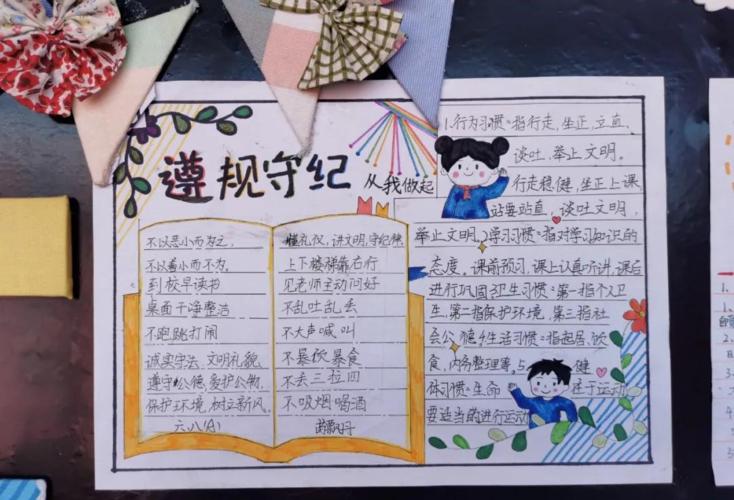 遵规守纪
从我做起
不以恶小而为之,
不以善小而不为。
到校早读书
桌面干净整洁
不跑跳打闹
诚实守法、文明礼貌,
遵守公德、爱护公物,
保护环境,树立新风。
六、八(A)
懂礼仪,讲文明,守纪律
上下楼梯靠右行
见老师主动问好
不乱吐乱丢
不大声喊叫
不暴饮暴食
不丢三拉四
不吸烟喝酒
1.行为习惯:指行走,坐正,立直、
谈吐,举止文明。
行走稳健,坐正上课
站要站直,谈吐文明,
举止文明。2学习习惯:指对学习知识的
态度,课前预习,课上认真听讲,课后
进行巩固。3卫生习惯:第一指个人卫
生,第二指保护环境,第三指社
会公德。4生活习惯:指起居,饮
食,内务整理等。5健
体习惯:生命在于运动
要适当的进行运动